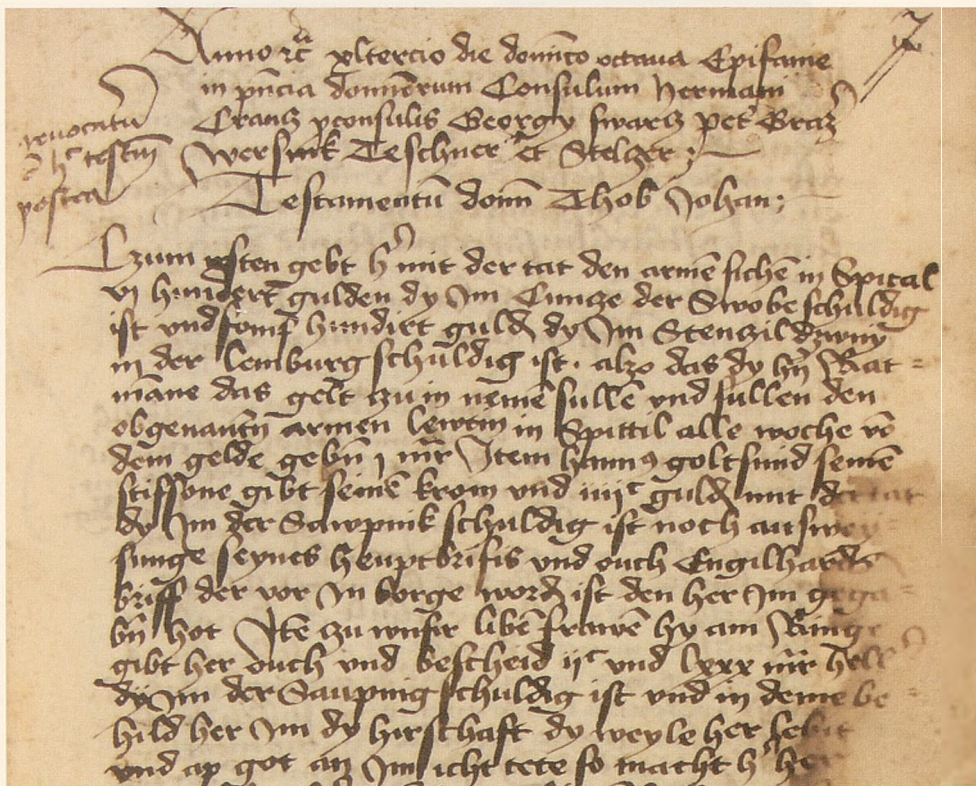 Anno etc xltercio die dominico octava Epifanie
in pñcia dominorum Consulum hermani
Crancz pconsulis Georgy swarcz pet Graz
Wersink Teschner Et Stelczer
revocatu
h testm
postea
Testamentū domī Thob Johan
Czum ersten gebt h mit der tat den armē sichē in Spital
vj hundert gulden dy Im Cuncze der Swobe schuldig
ist vnd fomf hundirt guldn dy Im Stenczil
in der lemburg schuldig ist. alzo das dy hñ Rat
māne das gelt zu in nemē sullē vnd sullen den
obgenantñ armen lewtin in Spittil alle woche vō
dem gelde gebñ j mr Item hannus goltsmid seinē
stiffsone gibt seinē krom vnd iiijc guldn mit der tat
dy Im der Sawpnik schuldig ist noch auswey
sunge seynes heuptbrifis vnd ouch Engilhardis
briff der vor In borge wordn ist den her Im gega
bñ hot Itē zu vnsir libē frawē hy am Ringe
gibt her ouch vnd bescheid ijc vnd lxxx mr
dy Im der Saupnig schuldig ist vnd in deme be
hild her Im dy hirschaft dy weyle her lebit
vnd ap got an Im icht tete so macht h